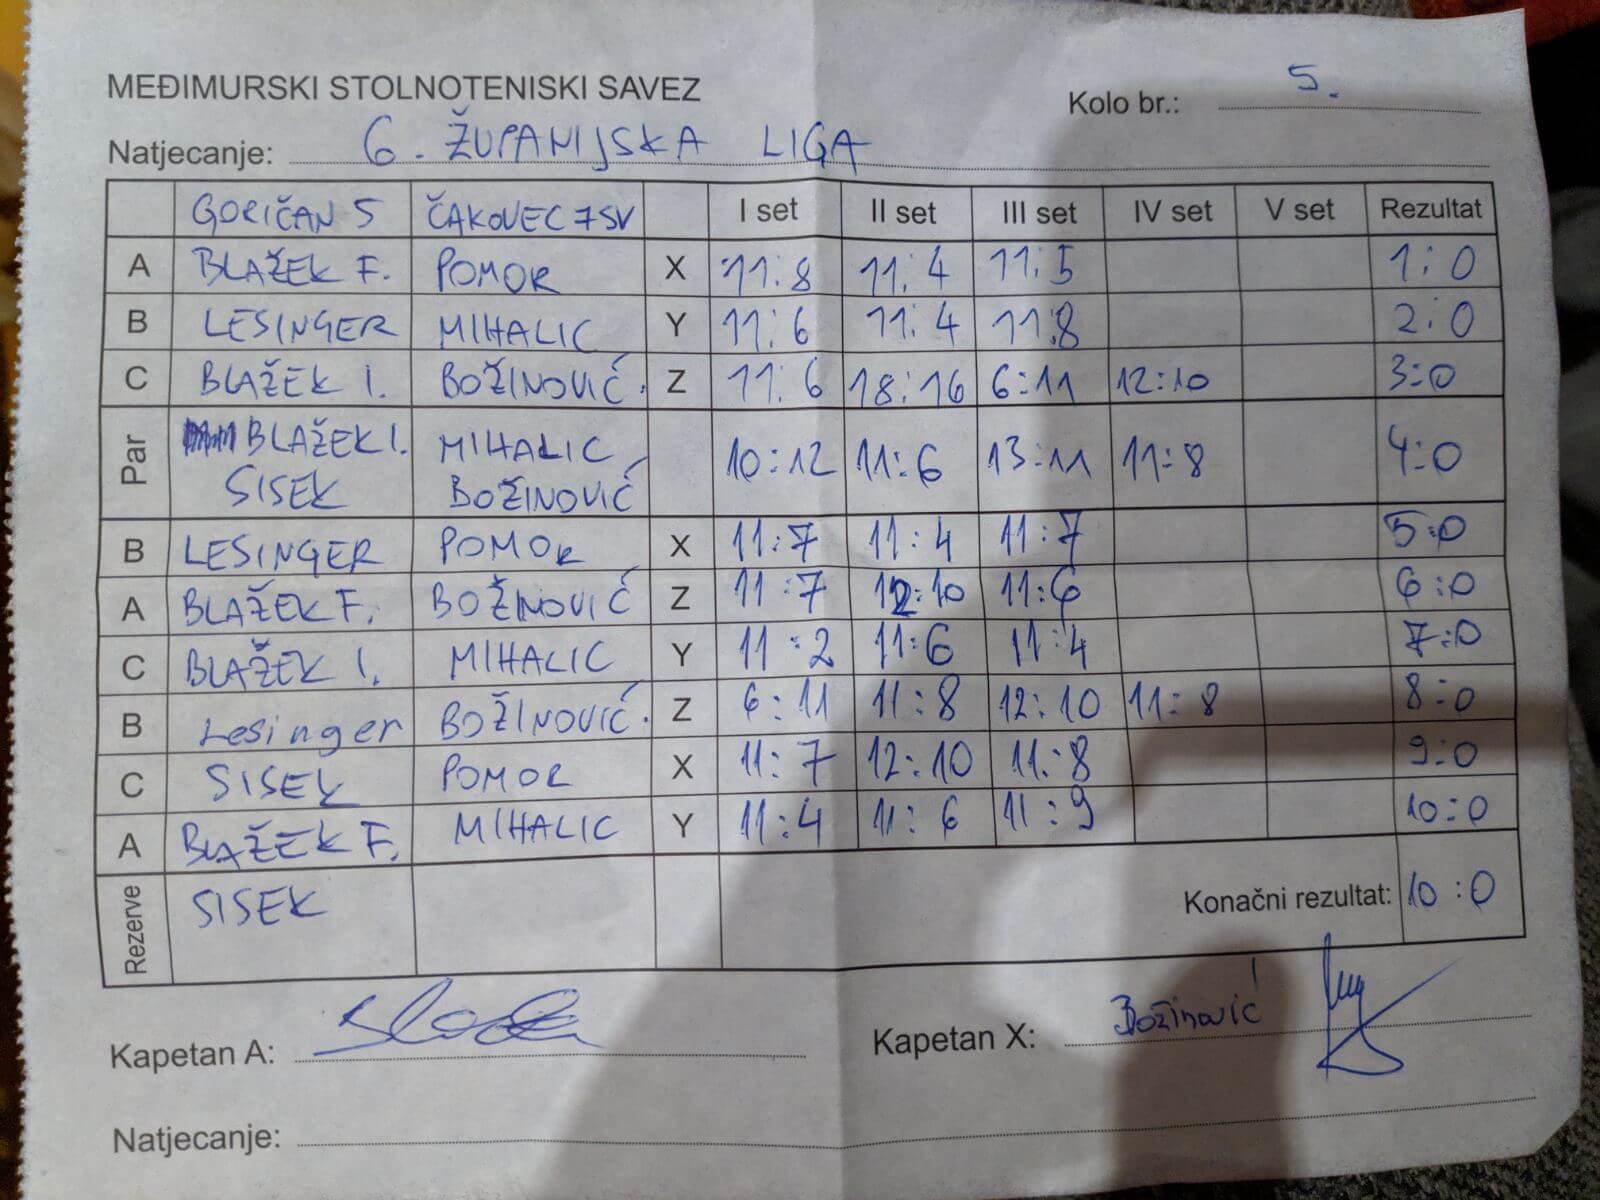 MEĐIMURSKI STOLNOTENISKI SAVEZ
Kolo br.: 5.
Natjecanje: 6. ŽUPANIJSKA LIGA
GORIČAN 5 ČAKOVEC 7SV I set II set III set IV set V set Rezultat
A BLAŽEK F. POMOR X 11:8 11:4 11:5 1:0
B LESINGER MIHALIC Y 11:6 11:4 11:8 2:0
C BLAŽEK I. BOŽINOVIĆ. Z 11:6 18:16 6:11 12:10 3:0
Par BLAŽEK I. MIHALIC 10:12 11:6 13:11 11:8 4:0
SISEK BOŽINOVIĆ
B LESINGER POMOR X 11:7 11:4 11:7 5:0
A BLAŽEK F. BOŽINOVIĆ Z 11:7 12:10 11:6 6:0
C BLAŽEK I. MIHALIC Y 11:2 11:6 11:4 7:0
B Lesinger BOŽINOVIĆ. Z 6:11 11:8 12:10 11:8 8:0
C SISEK POMOR X 11:7 12:10 11:8 9:0
A BLAŽEK F. MIHALIC Y 11:4 11:6 11:9 10:0
Rezerve SISEK Konačni rezultat: 10:0
Kapetan A: Kapetan X: Božinović
Natjecanje: